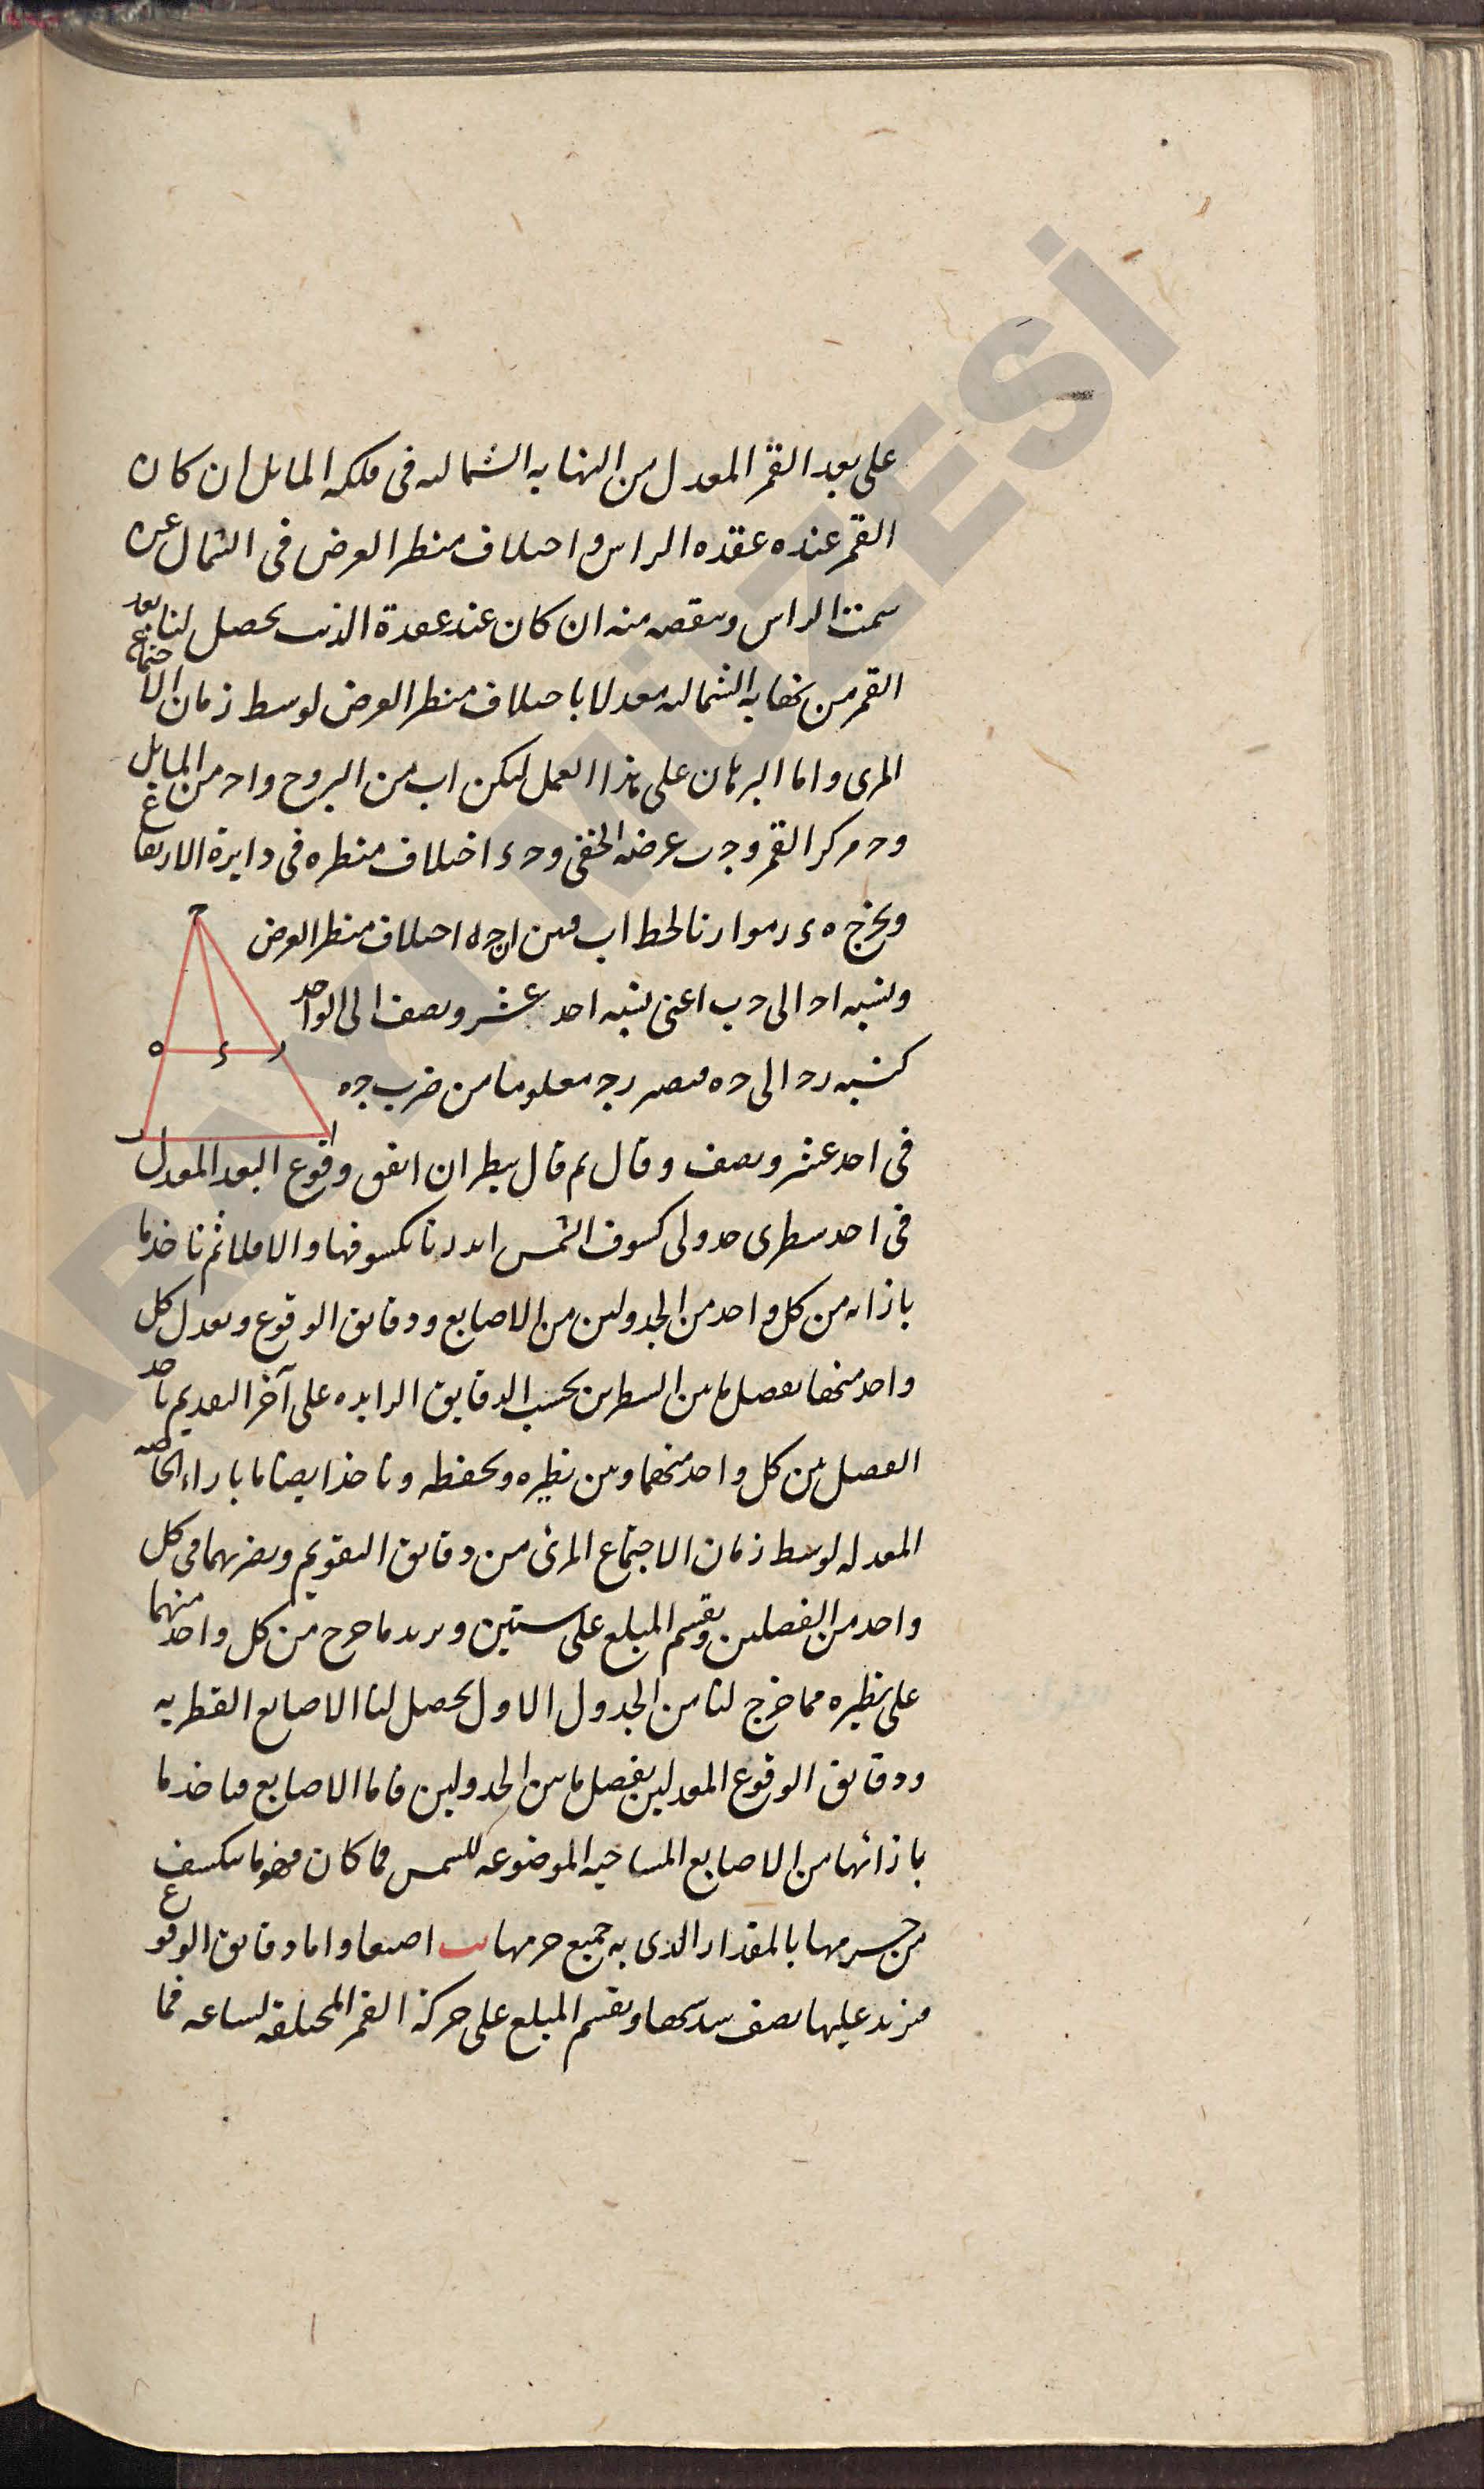 على بعد القمر المعدل من النهاية الشمالية فى فلكه المايل ان كان
القمر عنده عقده الراس واختلاف منظر العرض فى الشمال عن
سمت الراس وينقصه منه ان كان عند عقدة الذنب يحصل لنا بعد
القمر من نهايه الشماليه معدلا باختلاف منظر العرض لوسط زمان الاجتماع
المرى واما البرهان على هذا العمل ليكن اب من البروج واح من المايل
وح مركز القمر وحب عرضه الحقى وحء اختلاف منظره فى دايرة الارتفاع
ويخرج ه ء ر موازيا لخط اب فبين ان حه اختلاف منظر العرض
ونسبه اح الى حب اعنى نسبه احد عشر ونصف الى الواحد
كنسبه رح الى حه فيصير رح معلوما من ضرب حه
فى احد عشر ونصف وقال ثم قال ينظر ان اتفق وقوع البعد المعدل
فى احد سطرى جدولى كسوف الشمس انذرنا بكسوفها والا فلا ثم ناخذ ما
بازائه من كل واحد من الجدولين من الاصابع ودقايق الوقوع ونعدل كل
واحد منهما بفصل ما بين السطرين بحسب الدقايق الزايده على آخر العديم ناخذ
الفصل بين كل واحد منهما وبين نظيره ونحفظه وناخذ ايضا ما بازاء الخاصه
المعدله لوسط زمان الاجتماع المرئى من دقايق التقويم ونضربهما فى كل
واحد من الفصلين ونقسم المبلغ على ستين ونزيد ما خرج من كل واحد منهما
على نظيره مما خرج لنا من الجدول الاول يحصل لنا الاصابع القطريه
ودقايق الوقوع المعدلين بفصل ما بين الجدولين فاما الاصابع فناخذ ما
بازائها من الاصابع المساحيه الموضوعه للشمس فما كان فهو ما ينكسف
من جرمها بالمقدار الذى به جميع جرمها يب اصبعا واما دقايق الوقوع
فنزيد عليها نصف سدسها ونقسم المبلغ على حركة القمر المختلفه لساعه فما
ح
ر ء ه
ا ب